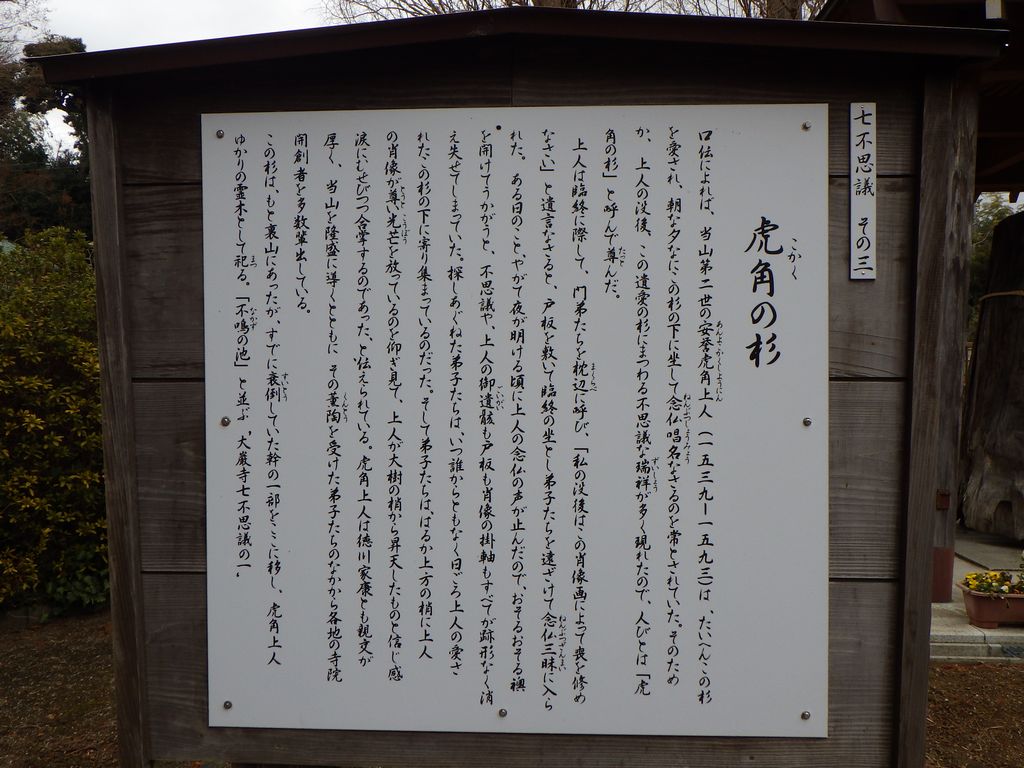 七不思議　その三
虎角の杉
こかく
口伝によれば、当山第二世の安誉虎角上人（一五三九ー一五九三）は、たいへんこの杉
を愛され、朝な夕なにこの杉の下に坐して念仏唱名なさるのを常とされていた。そのため
か、上人の没後、この遺愛の杉にまつわる不思議な瑞祥が多く現れたので、人びとは「虎
角の杉」と呼んで尊んだ。
上人は臨終に際して、門弟たちを枕辺に呼び、「私の没後はこの肖像画によって喪を修め
なさい」と遺言なさると、戸板を敷いて臨終の坐とし弟子たちを遠ざけて念仏三昧に入ら
れた。ある日のこと、やがて夜が明ける頃に上人の念仏の声が止んだので、おそるおそる襖
を開けてうかがうと、不思議や、上人の御遺骸も戸板も肖像の掛軸もすべてが跡形なく消
え失せてしまっていた。探しあぐねた弟子たちは、いつ誰からともなく日ごろ上人の愛さ
れたこの杉の下に寄り集まっているのだった。そして弟子たちは、はるか上方の梢に上人
の肖像が尊い光芒を放っているのを仰ぎ見て、上人が大樹の梢から昇天したものと信じ感
涙にむせびつつ合掌するのであった、と伝えられている。虎角上人は徳川家康とも親交が
厚く、当山を隆盛に導くとともに、その薫陶を受けた弟子たちのなかから各地の寺院
開創者を多数輩出している。
この杉は、もと裏山にあったが、すでに衰倒していた幹の一部をここに移し、虎角上人
ゆかりの霊木として祀る。「不鳴の池」と並ぶ　大巌寺七不思議の一。